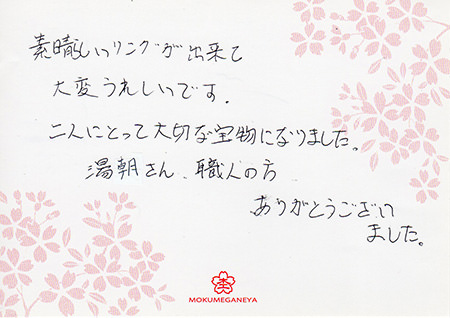 素晴しいリングが出来て
大変うれしいです.
二人にとって大切な宝物になりました。
湯朝さん、職人の方
ありがとうござい
ました。
MOKUMEGANEYA